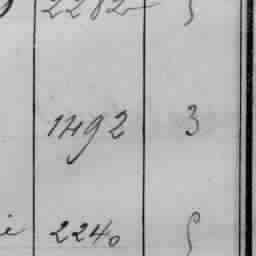 2282 5
1492 3
2240 5